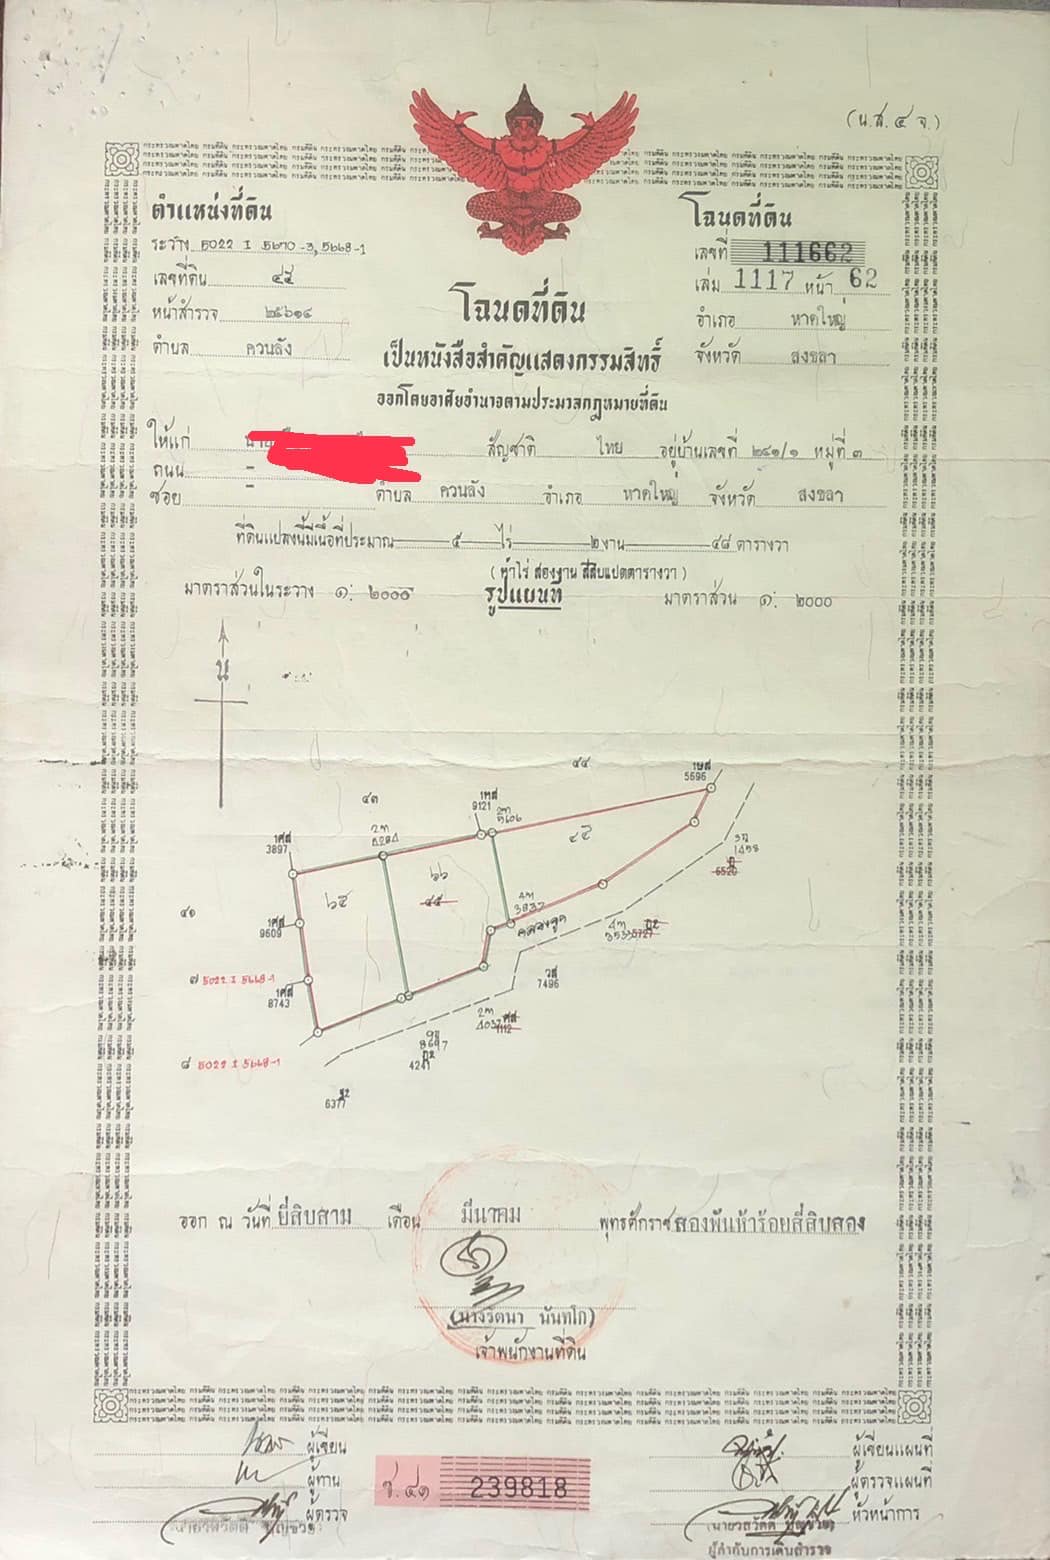 (น.ส.๔ จ.)
ตำแหน่งที่ดิน
ระวาง 5022 I 5670-3, 5668-1
เลขที่ดิน ๔๕
หน้าสำรวจ ๒๕๖๑๔
ตำบล ควนลัง
โฉนดที่ดิน
เลขที่ 111662
เล่ม 1117 หน้า 62
อำเภอ หาดใหญ่
จังหวัด สงขลา
โฉนดที่ดิน
เป็นหนังสือสำคัญแสดงกรรมสิทธิ์
ออกโดยอาศัยอำนาจตามประมวลกฎหมายที่ดิน
ให้แก่ สัญชาติ ไทย อยู่บ้านเลขที่ ๒๔๑/๑ หมู่ที่ ๓
ถนน -
ซอย - ตำบล ควนลัง อำเภอ หาดใหญ่ จังหวัด สงขลา
ที่ดินแปลงนี้มีเนื้อที่ประมาณ ๕ ไร่ ๒ งาน ๔๘ ตารางวา
(ห้าไร่ สองงาน สี่สิบแปดตารางวา)
มาตราส่วนในระวาง ๑: ๒๐๐๐ รูปแผนที่ มาตราส่วน ๑: ๒๐๐๐
น
๔๔
5696
๔๓
9121
3897
๔๕
๖๖
๖๕
๔๕
3837
คลองจูด
6520
๔๑
9609
๗ 5022 I 5668-1
8743
วส
7496
๘ 5022 I 5668-1
4241
6377
ออก ณ วันที่ ยี่สิบสาม เดือน มีนาคม พุทธศักราช สองพันห้าร้อยสี่สิบสอง
(นางรัตนา นันทโก)
เจ้าพนักงานที่ดิน
ผู้เขียน
ผู้ทาน
ผู้ตรวจ
ช.๔๑ 239818
ผู้เขียนแผนที่
ผู้ตรวจแผนที่
หัวหน้าการ
ผู้กำกับการเดินสำรวจ